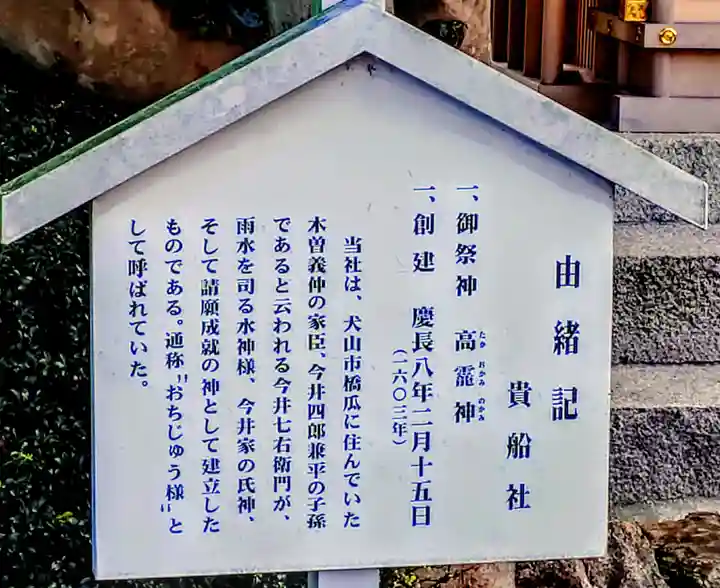 由緒記
貴船社
一、御祭神 高龗神
たか おかみ のかみ
一、創建 慶長八年二月十五日
(一六〇三年)
当社は、犬山市橋爪に住んでいた
木曽義仲の家臣、今井四郎兼平の子孫
であると云われる今井七右衛門が、
雨水を司る水神様、今井家の氏神、
そして請願成就の神として建立した
ものである。通称〝おちじゅう様〟と
して呼ばれていた。